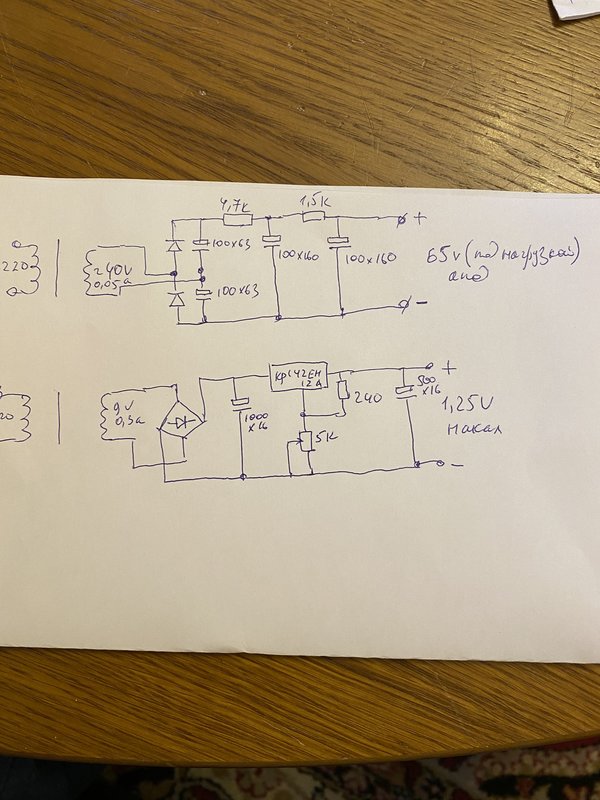 4,7к 1,5к
+
220
~40v
0,05а
100х63
100х63
100х160
100х160
65v (под нагрузкой)
анод
-
20
9v
0,3а
КР142ЕН
12А
1000
х16
240
5К
500
х16
+
1,25V
накал
-